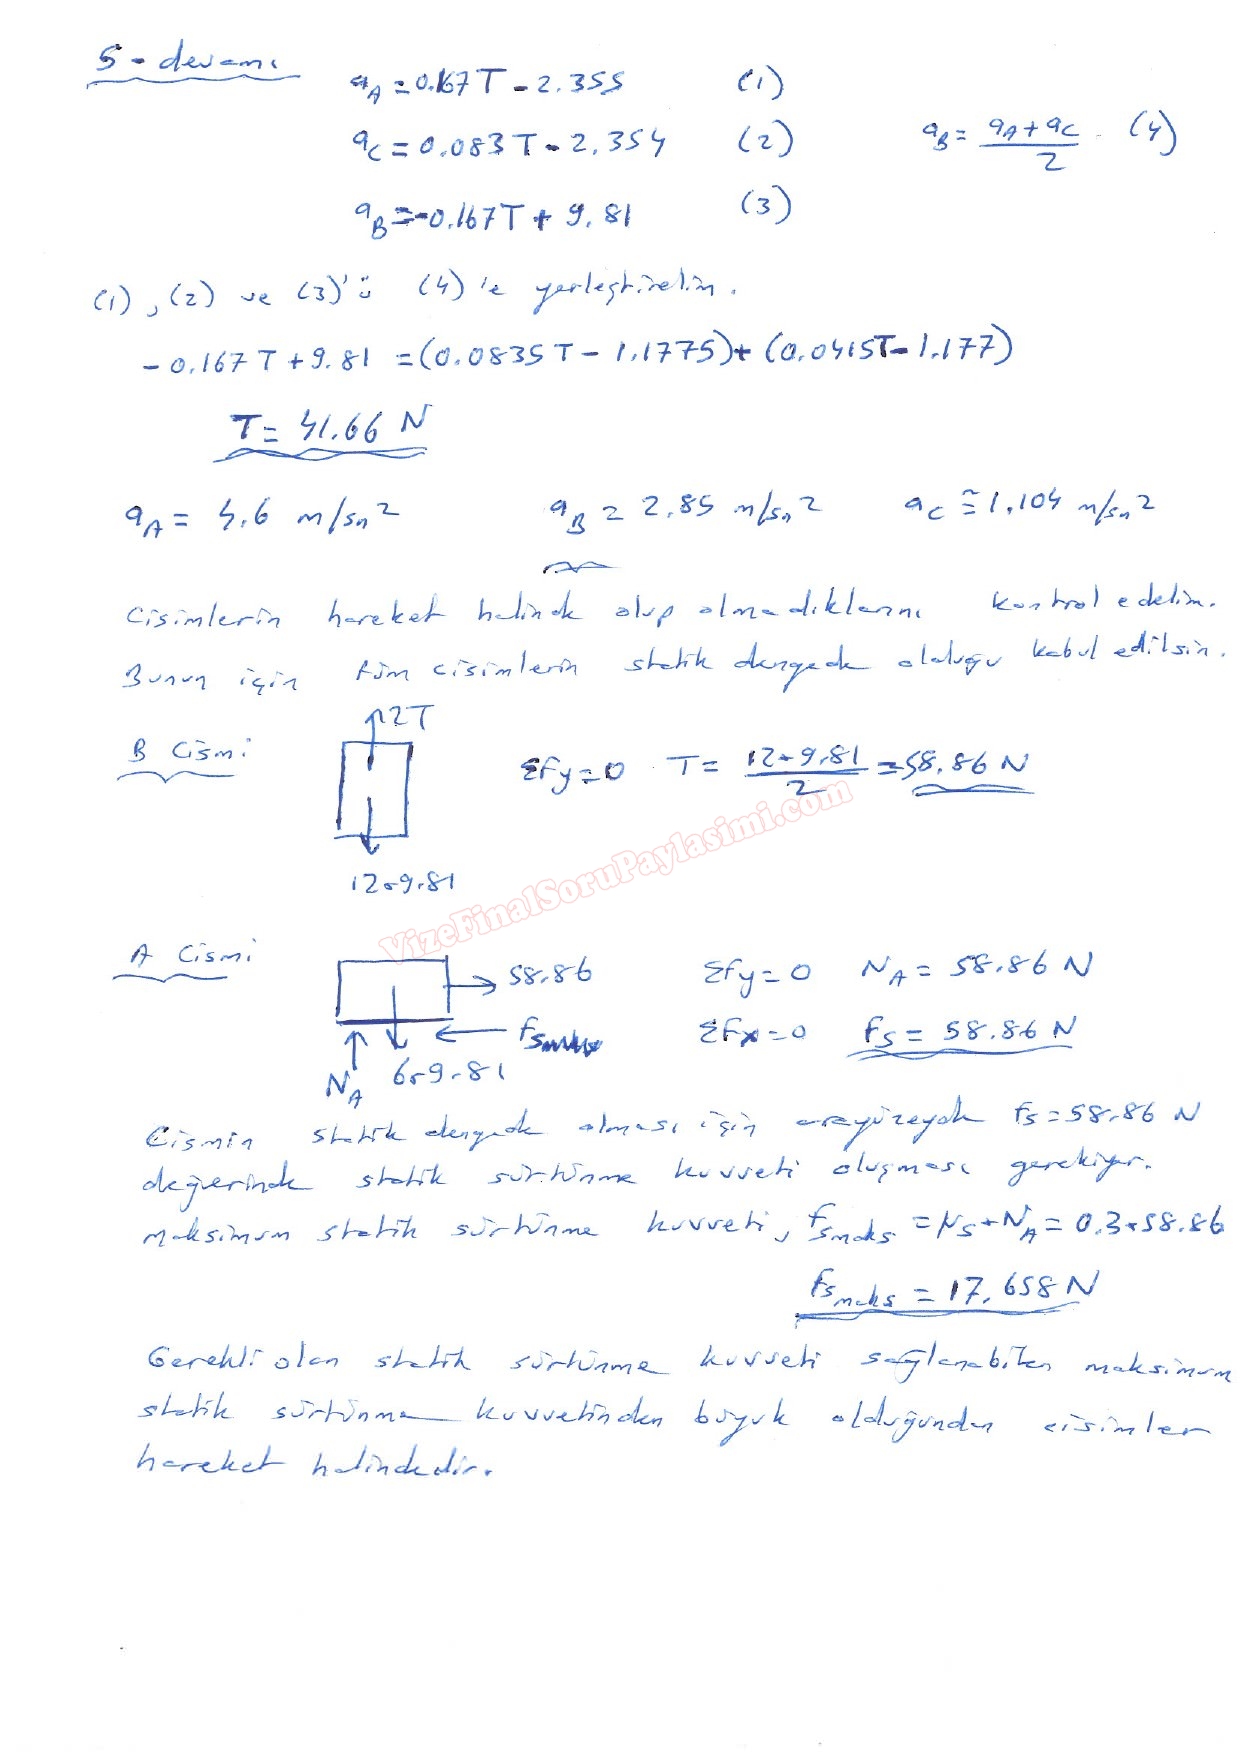 5 - devamı
a_A = 0.167T - 2.355 (1)
a_C = 0.083T - 2.354 (2) a_B = (a_A + a_C)/2 (4)
a_B = -0.167T + 9.81 (3)
(1), (2) ve (3)'ü (4)'e yerleştirelim.
-0.167T + 9.81 = (0.0835T - 1.1775) + (0.0415T - 1.177)
T = 41.66 N
a_A = 4.6 m/sn² a_B = 2.85 m/sn² a_C ≅ 1.104 m/sn²
Cisimlerin hareket halinde olup olmadıklarını kontrol edelim.
Bunun için tüm cisimlerin statik dengede olduğu kabul edilsin.
2T
B Cismi ΣFy=0 T = (12*9.81)/2 = 58.86 N
12*9.81
VizeFinalSoruPaylasimi.com
A Cismi 58.86 ΣFy=0 N_A = 58.86 N
fs ΣFx=0 fs = 58.86 N
N_A 6*9.81
Cismin statik dengede olması için arayüzeyde fs=58.86 N
değerinde statik sürtünme kuvveti oluşması gerekiyor.
maksimum statik sürtünme kuvveti, fsmaks = μs*N_A = 0.3*58.86
fsmaks = 17.658 N
Gerekli olan statik sürtünme kuvveti sağlanabilen maksimum
statik sürtünme kuvvetinden büyük olduğundan cisimler
hareket halindedir.